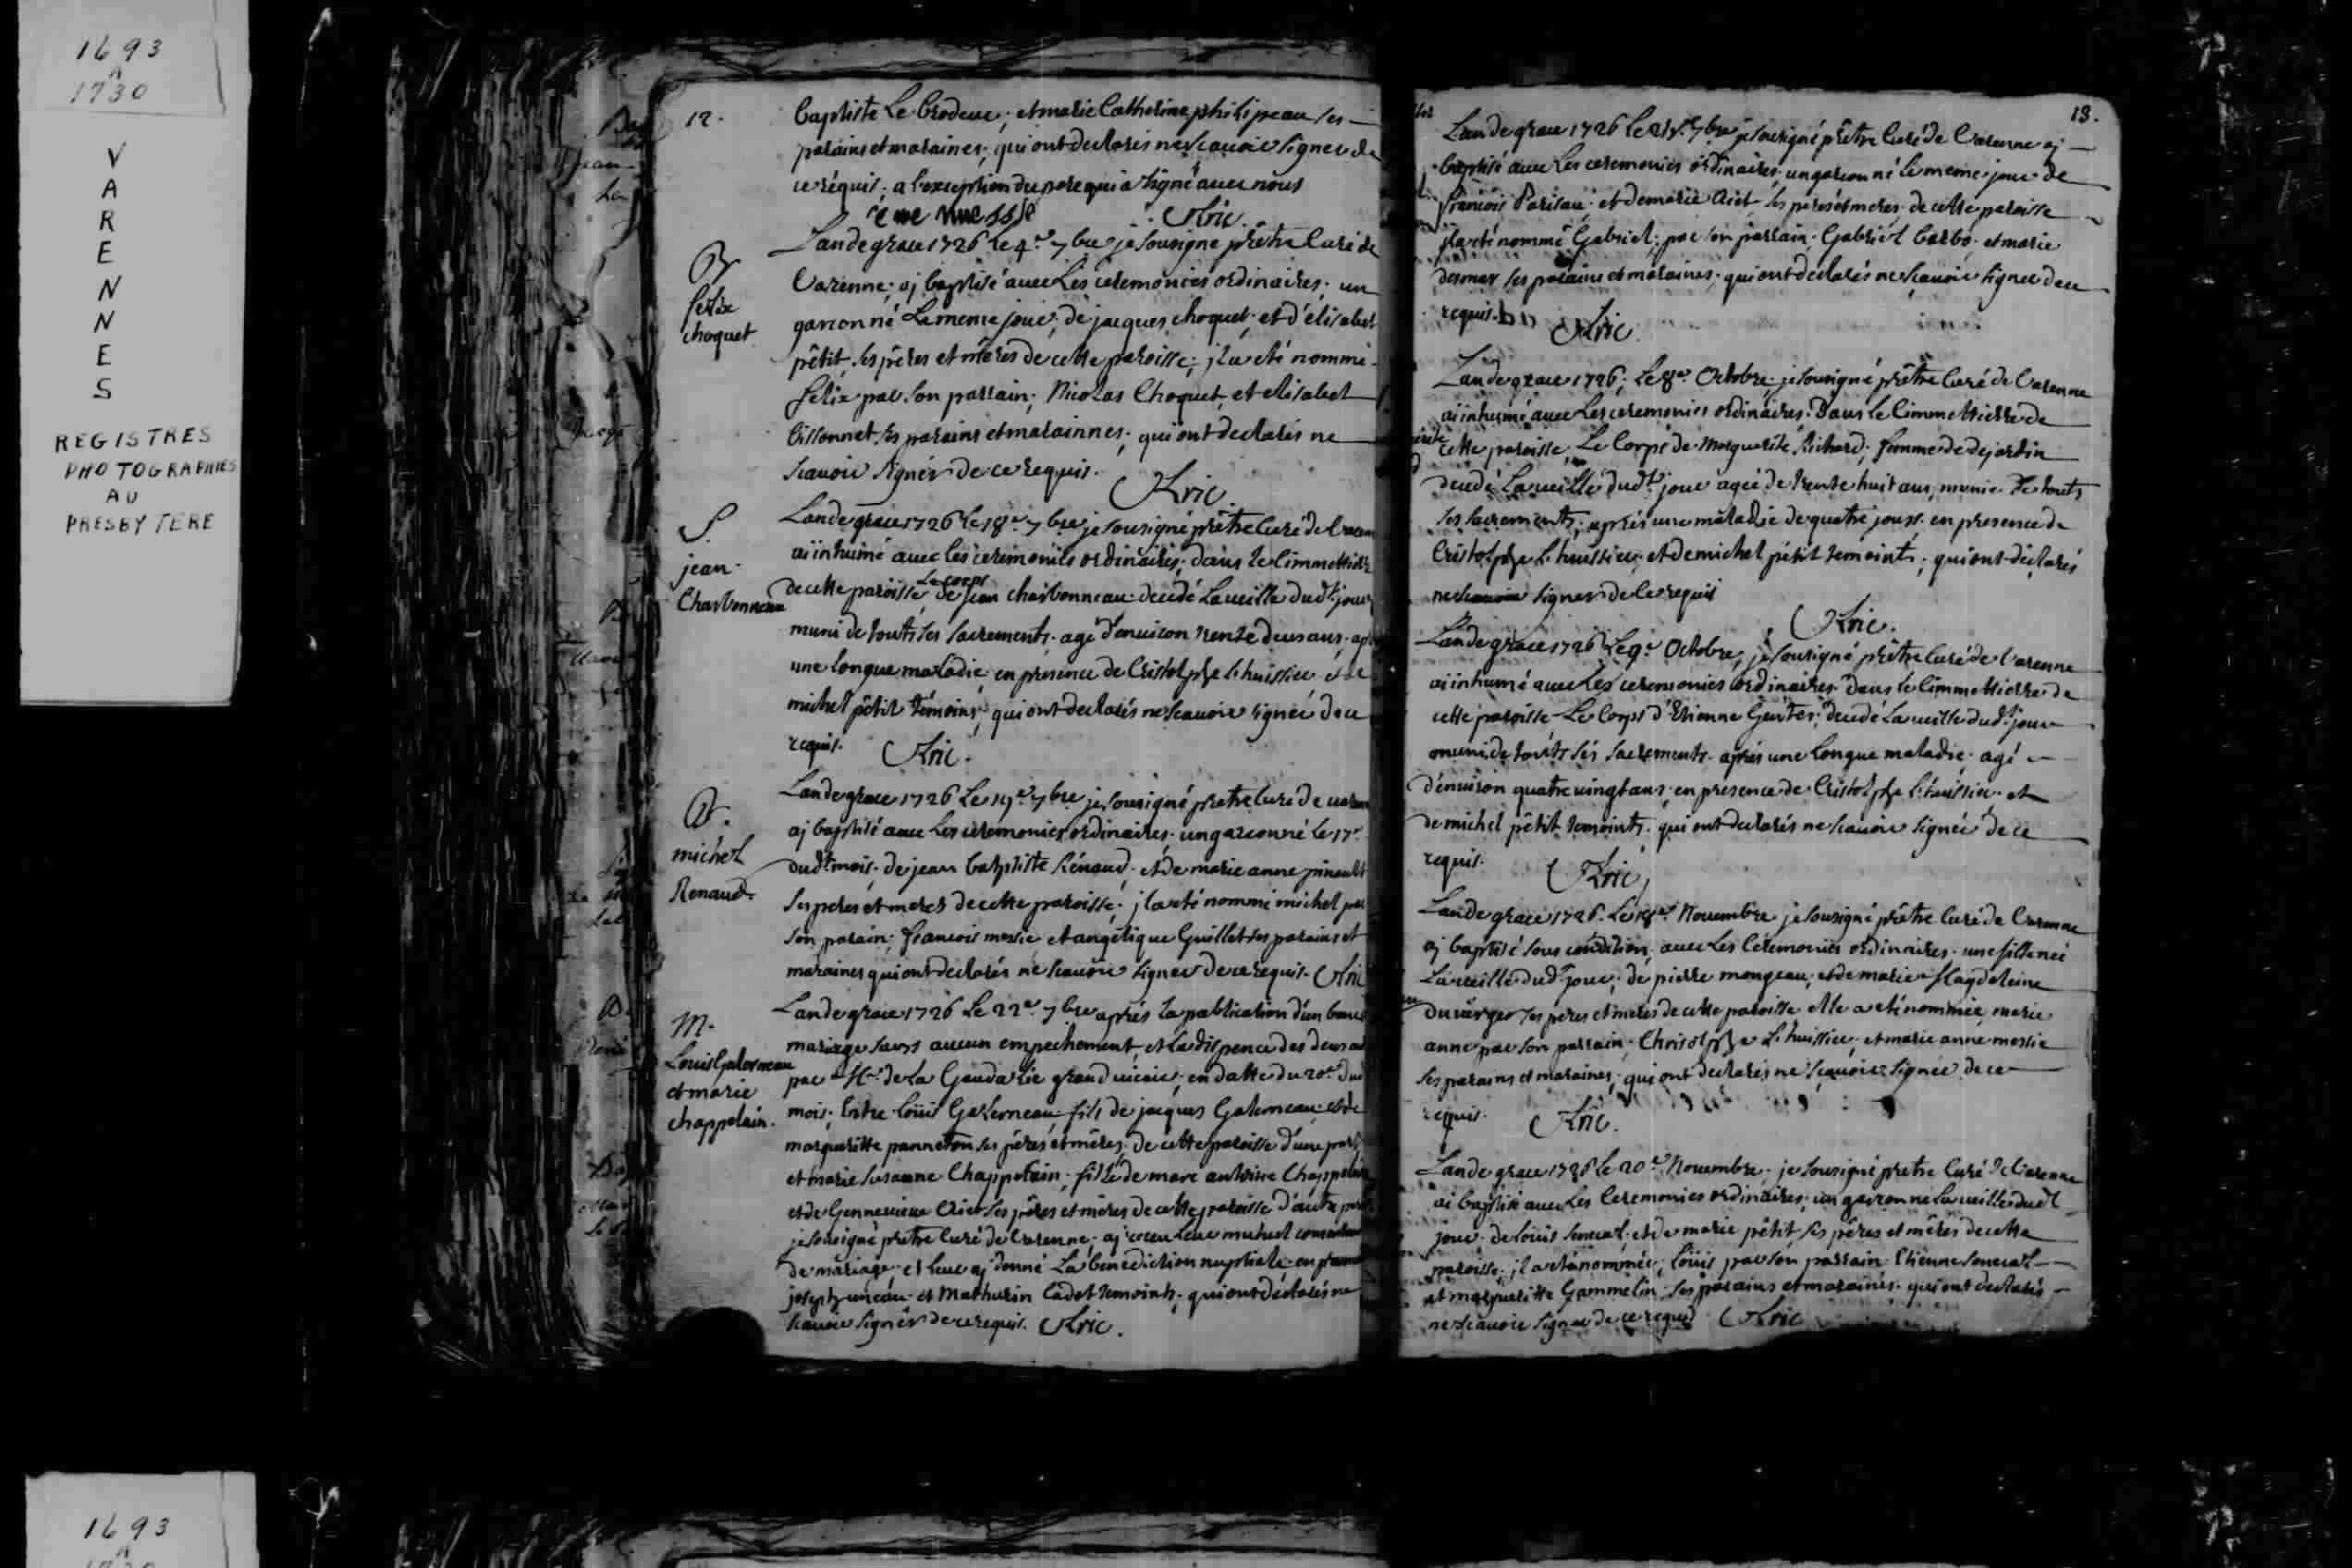 1693
A
1730
V
A
R
E
N
N
E
S
REGISTRES
PHOTOGRAPHIES
AU
PRESBYTERE
12.
baptiste Le brodeur; et marie Catherine philipeau ses
parains et maraines; qui ont declarés ne scavoir signer de
ce réquis; a l'exception du pere qui a signé avec nous
Kric
B
felix
choquet
Lan de grace 1726 le 4e 7bre je sousigné prêtre Curé de
Varenne; aj baptisé avec Les ceremonies ordinaires; un
garcon né Le meme jour; de jacques choquet; et d'élisabet
pêtit, ses pêres et mêres de cette paroisse; jl a eté nommé
felix par son parrain; Nicolas Choquet, et elisabet
bissonnet ses parains et marainnes; qui ont declarés ne
scavoir signer de ce requis.
Kric.
S
jean
Charbonneau
Lan de grace 1726 le 18e 7bre je sousigné prêtre Curé de Varenn
ai inhumé avec les ceremonies ordinaires; dans le Cimmettierre
de cette paroisse Le corps de jean charbonneau decedé La veille dudt jour
muni de touts ses sacrements. agé d'environ trente deus ans. ap
une longue maladie en presence de Cristolphe l'huissier et de
michel pêtit témoins; qui ont declarés ne scavoir signér de ce
requis.
Kric.
B.
michel
Renaud.
Lan de grace 1726 Le 19e 7bre je sousigné pretre curé de varen
aj baptisé avec Les ceremonies ordinaires; un garcon né le 17e
dudt mois; de jean baptiste Rénaud; et de marie anne pinault
ses peres et meres de cette paroisse; jl a eté nommé michel par
son parain; francois messie et angélique Guillet ses parains et
maraines qui ont declarés ne scavoir signer de ce requis. Kric
M.
Louis Galerneau
et marie
chappelain.
Lan de grace 1726 Le 22e 7bre aprés la publication d'un banc
mariage sans aucun empechement, et la dispence des deus au
par Mr de la Goudalie grand vicaire; en datte du 20e du
mois; Entre Loüis Galerneau fils de jacques Galerneau et de
margueritte panneton ses pêres et mêres; de cette paroisse d'une part
et marie susanne Chappelain; fille de marc antoine Chappelain
et de Gennevieve Crier ses pêres et mêres de cette paroisse d'autre part
je sousigné pretre Curé de Varenne; aj receu Leur mutuel consentem
de mariage; et leur aj donné La benediction nuptiale en
et Mathurin Cadet temoints; qui ont déclarés ne
scavoir signér de ce requis. Kric.
13.
Lan de grace 1726 le 7bre je sousigné prêtre Curé de Varenne aj
baptisé avec Les ceremonies ordinaires; un garcon né le meme jour de
francois et de marie ses peres et meres de cette paroisse
jl a eté nommé Gabriel; par son parrain; Gabriél et marie
ses parains et maraines; qui ont declarés ne scavoir signer de ce
requis.
Kric.
Lan de grace 1726; Le 8e Octobre; je sousigné prêtre Curé de Varenne
ai inhumé avec Les ceremonies ordinaires. Dans le Cimmettierre de
cette paroisse, Le Corps de Marguerite Richard; femme de dejardin
decedé La veille dudt jour ageé de trente huit ans, munie de touts
ses sacrements; aprés une maladie de quatre jours. en presence de
Cristolphe L'huissier; et de michel pétit temoints; qui ont déclarés
ne scavoir signer de ce requis
Kric.
Lan de grace 1726 Le 9e Octobre, je sousigné prêtre Curé de Varenne
ai inhumé avec Les ceremonies ordinaires. Dans le Cimmettierre de
cette paroisse Le Corps d'Etienne decedé La veille dudt jour
muni de touts ses sacrements. aprés une Longue maladie; agé
d'environ quatre vingt ans; en presence de Cristolphe l'huissier et
de michel pêtit temoints; qui ont declarés ne scavoir signér de ce
requis.
Kric.
Lan de grace 1726. Le Novembre je sousigné prêtre Curé de Varenne
aj baptisé sous condition; avec Les Ceremonies ordinaires. une fille neé
La veille dudt jour; de pierre mongeau; et de marie Magdeleine
Duverger ses peres et meres de cette paroisse elle a eté nommée; marie
anne par son parrain; Christolphe L'huissier; et marie anne messie
ses parains et maraines; qui ont declarés ne scavoir signér de ce
requis.
Kric.
Lan de grace 1726 Le 20e Novembre; je sousigné pretre Curé de Varenne
ai baptisé avec Les Ceremonies ordinaires; un garcon né La veille dudt
jour. de Loüis senecal; et de marie pêtit ses pêres et mêres de cette
paroisse; jl a eté nommée; Loüis par son parrain Etienne senecal
et margueritte Gammelin, ses parains et maraines; qui ont declarés
ne scavoir signer de ce requis Kric
1693
A